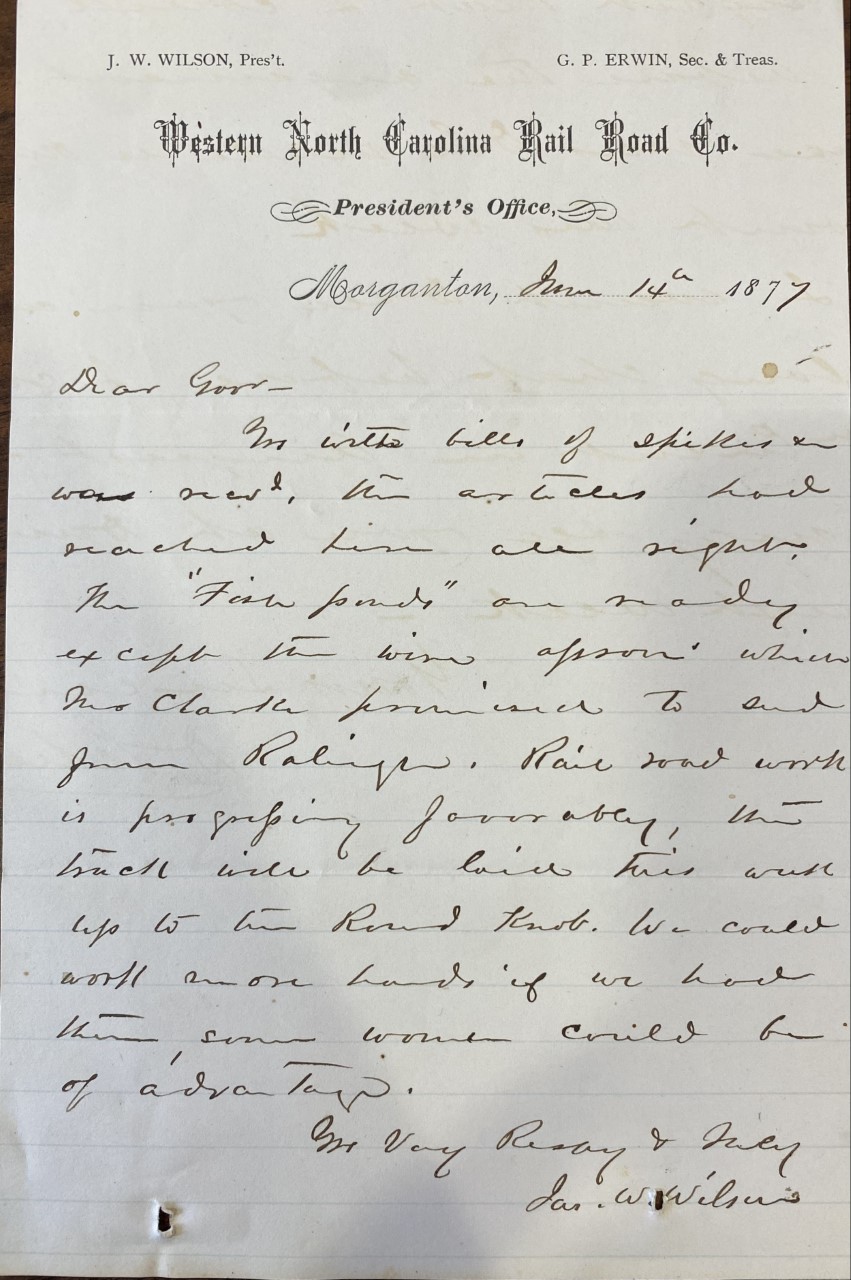 J. W. WILSON, Pres't. G. P. ERWIN, Sec. & Treas.
Western North Carolina Rail Road Co.
President's Office,
Morganton, 14th 1877
Dear Govr—
Yrs with bills of spikes &c
was recvd, the articles had
reached here all right.
The "Fish ponds" are ready
except the wire apron which
Mr Clarke promised to send
from Raleigh. Rail road work
is progressing favorably, the
track will be laid this week
up to the Round Knob. We could
work more hands if we had
them, some women could be
of advantage.
Yrs Very Respy & Truly
Jas. W. Wilson